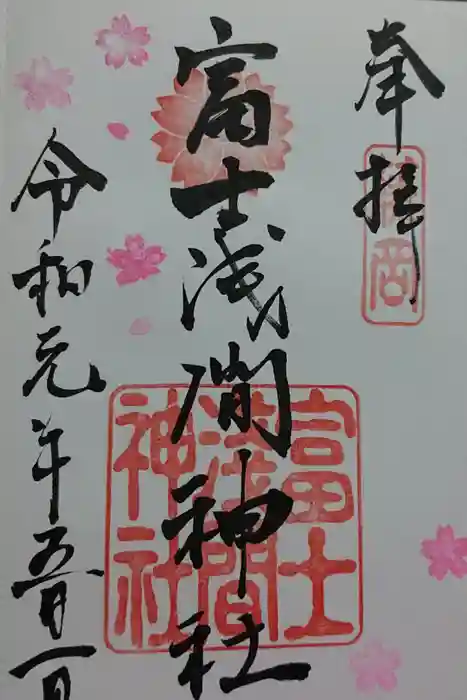 奉拝
岡
富士浅間神社
富士
浅間
神社
令和元年五月一日